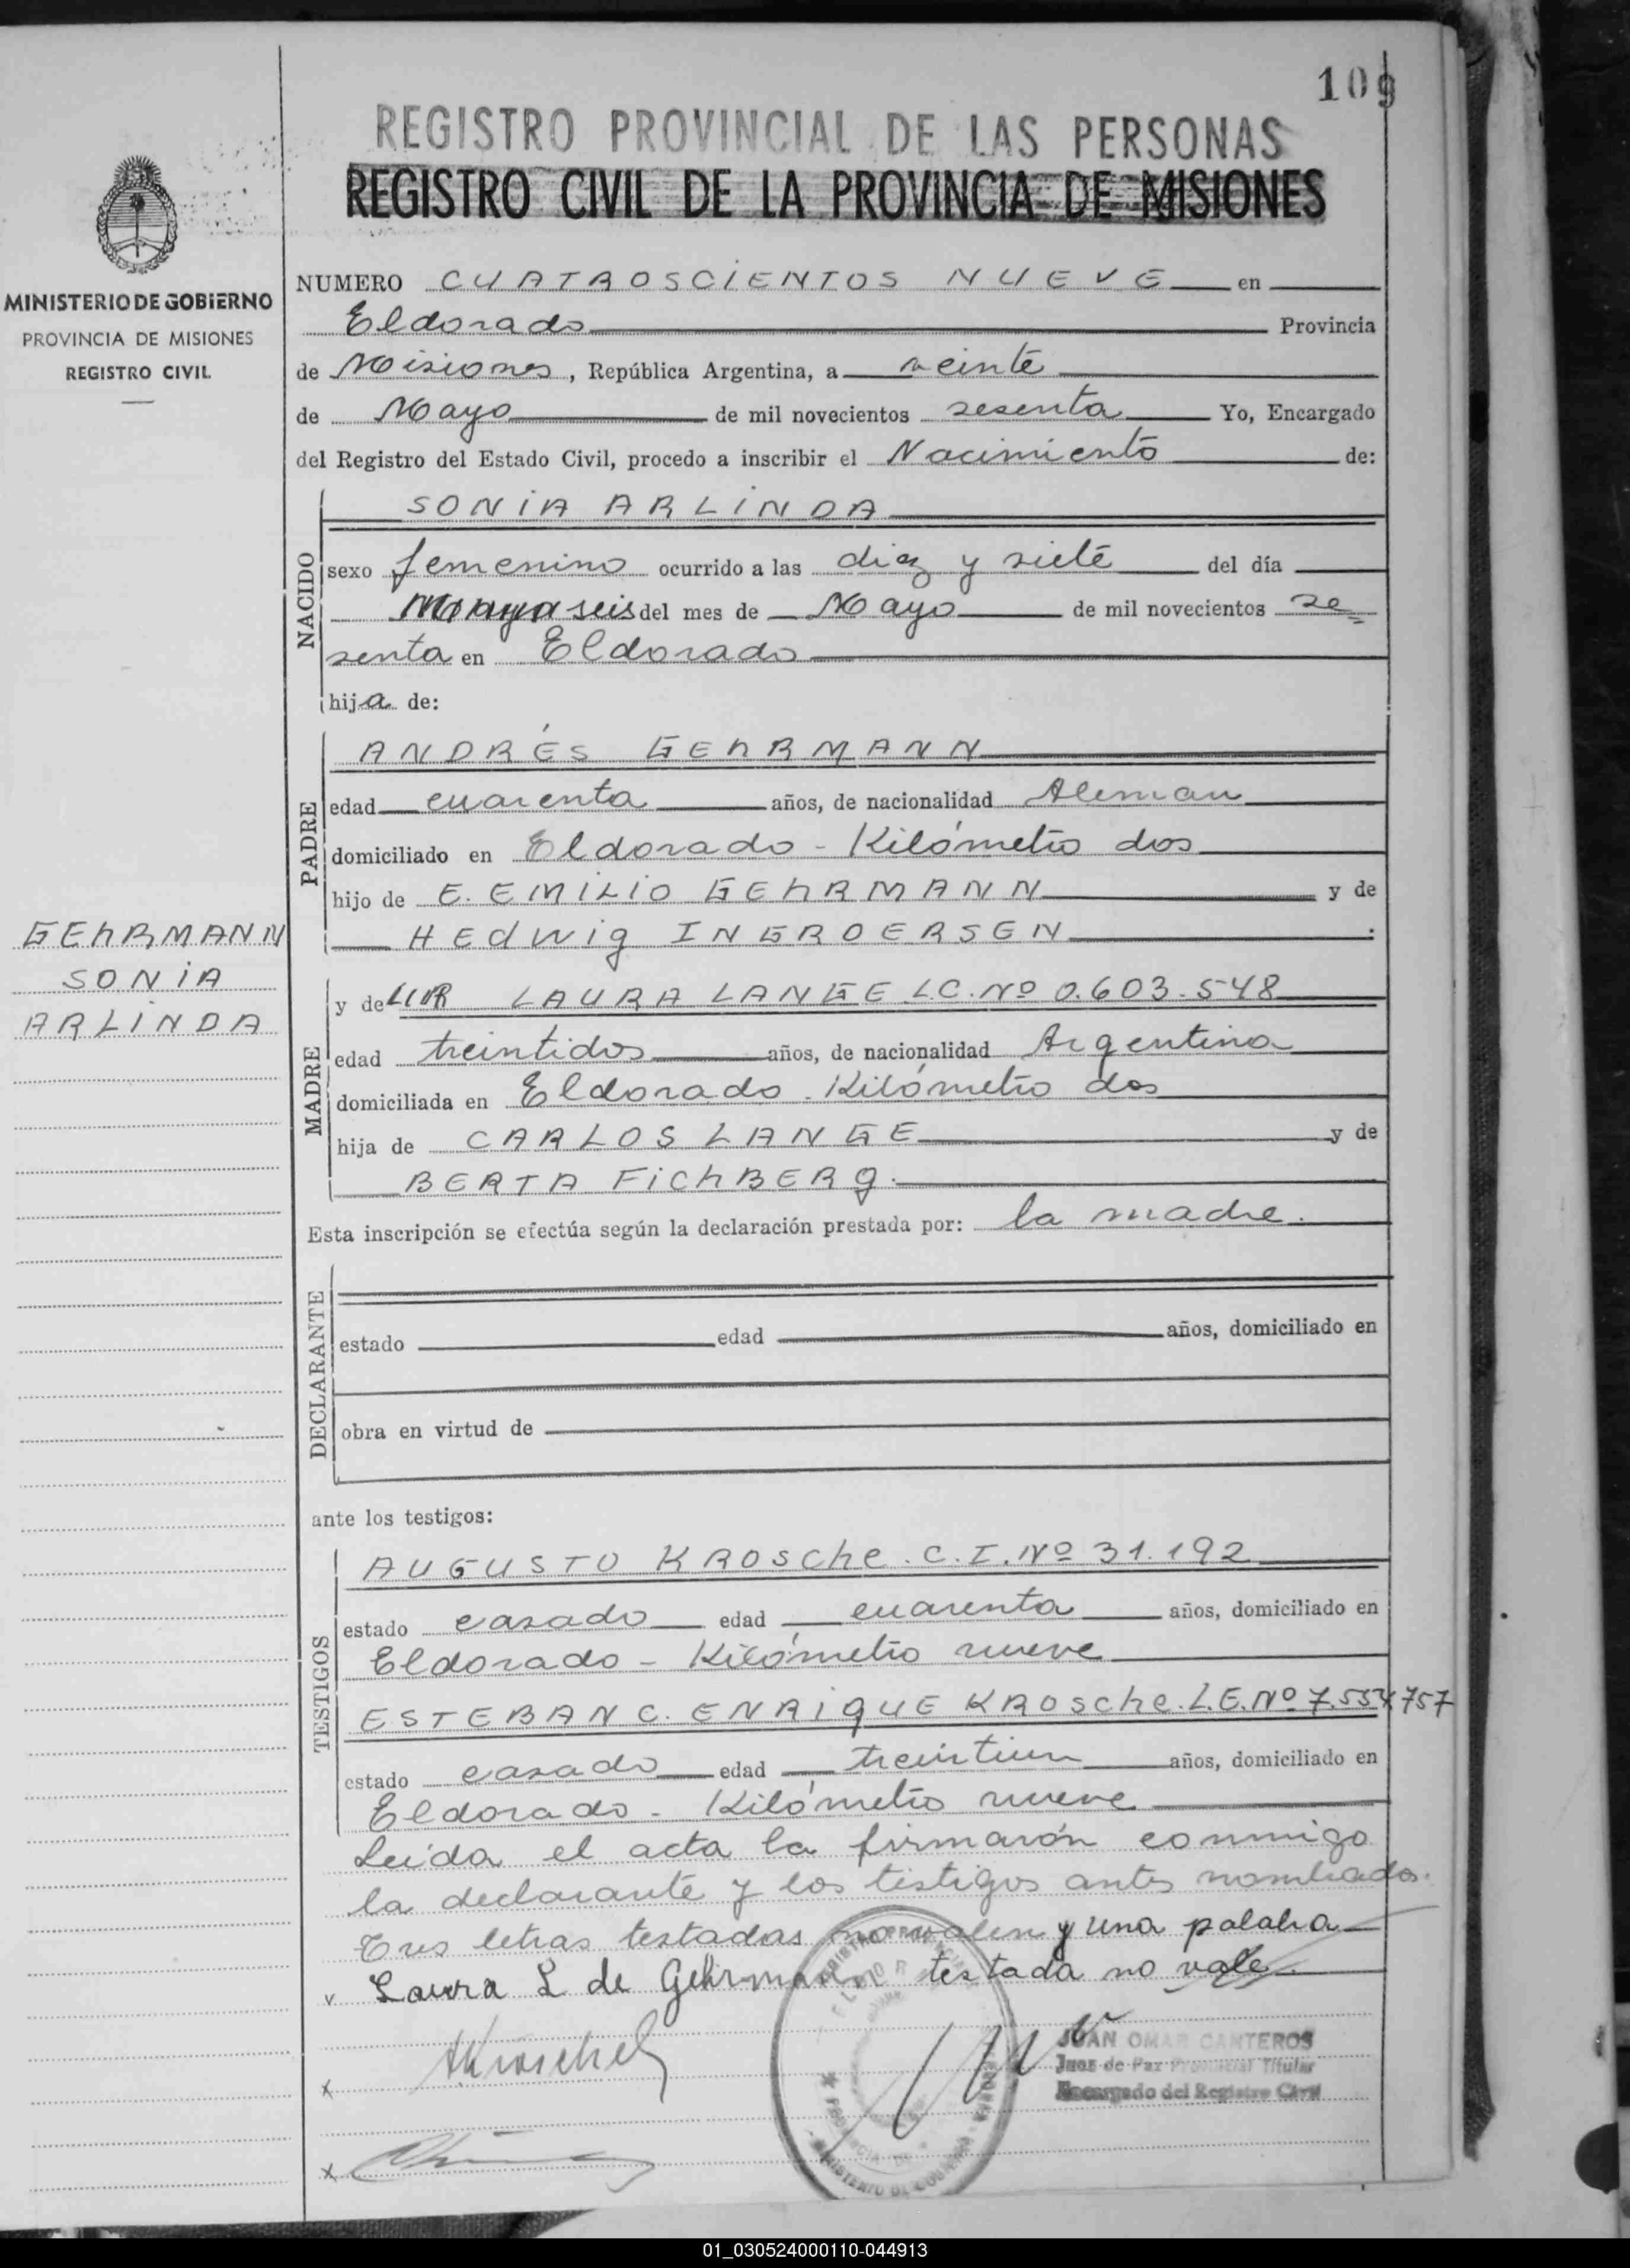 109
REGISTRO PROVINCIAL DE LAS PERSONAS
REGISTRO CIVIL DE LA PROVINCIA DE MISIONES
MINISTERIO DE GOBIERNO
PROVINCIA DE MISIONES
REGISTRO CIVIL
NUMERO CUATROSCIENTOS NUEVE en
Eldorado Provincia
de Misiones, República Argentina, a veinte
de Mayo de mil novecientos sesenta Yo, Encargado
del Registro del Estado Civil, procedo a inscribir el Nacimiento de:
NACIDO
SONIA ARLINDA
sexo femenino ocurrido a las diez y siete del día
seis del mes de Mayo de mil novecientos se=
senta en Eldorado
hija de:
PADRE
ANDRÉS GEhRMANN
edad cuarenta años, de nacionalidad Aleman
domiciliado en Eldorado - Kilómetro dos
hijo de E. EMILIO GEhRMANN y de
HEdwig INGROERSEN
GEhRMANN
SONIA
ARLINDA
MADRE
y de LAURA LANGE L.C. Nº 0.603.548
edad treintidos años, de nacionalidad Argentina
domiciliada en Eldorado - Kilómetro dos
hija de CARLOS LANGE y de
BERTA FichBERg.
Esta inscripción se efectúa según la declaración prestada por: la madre.
DECLARANTE
estado edad años, domiciliado en
obra en virtud de
ante los testigos:
TESTIGOS
AUGUSTO KROSche. C.I. Nº 31.192
estado casado edad cuarenta años, domiciliado en
Eldorado - Kilómetro nueve
ESTEBAN C. ENRIqUE KROSche. L.E. Nº 7.554.757
estado casado edad treintiun años, domiciliado en
Eldorado - Kilómetro nueve
Leida el acta la firmarón conmigo
la declarante y los testigos antes nombrados.
Tres letras testadas no valen y una palabra
v Laura L de Gehrmann testada no vale
x
JUAN OMAR CANTEROS
Juez de Paz Provincial Titular
Encargado del Registro Civil
x
01_030524000110-044913